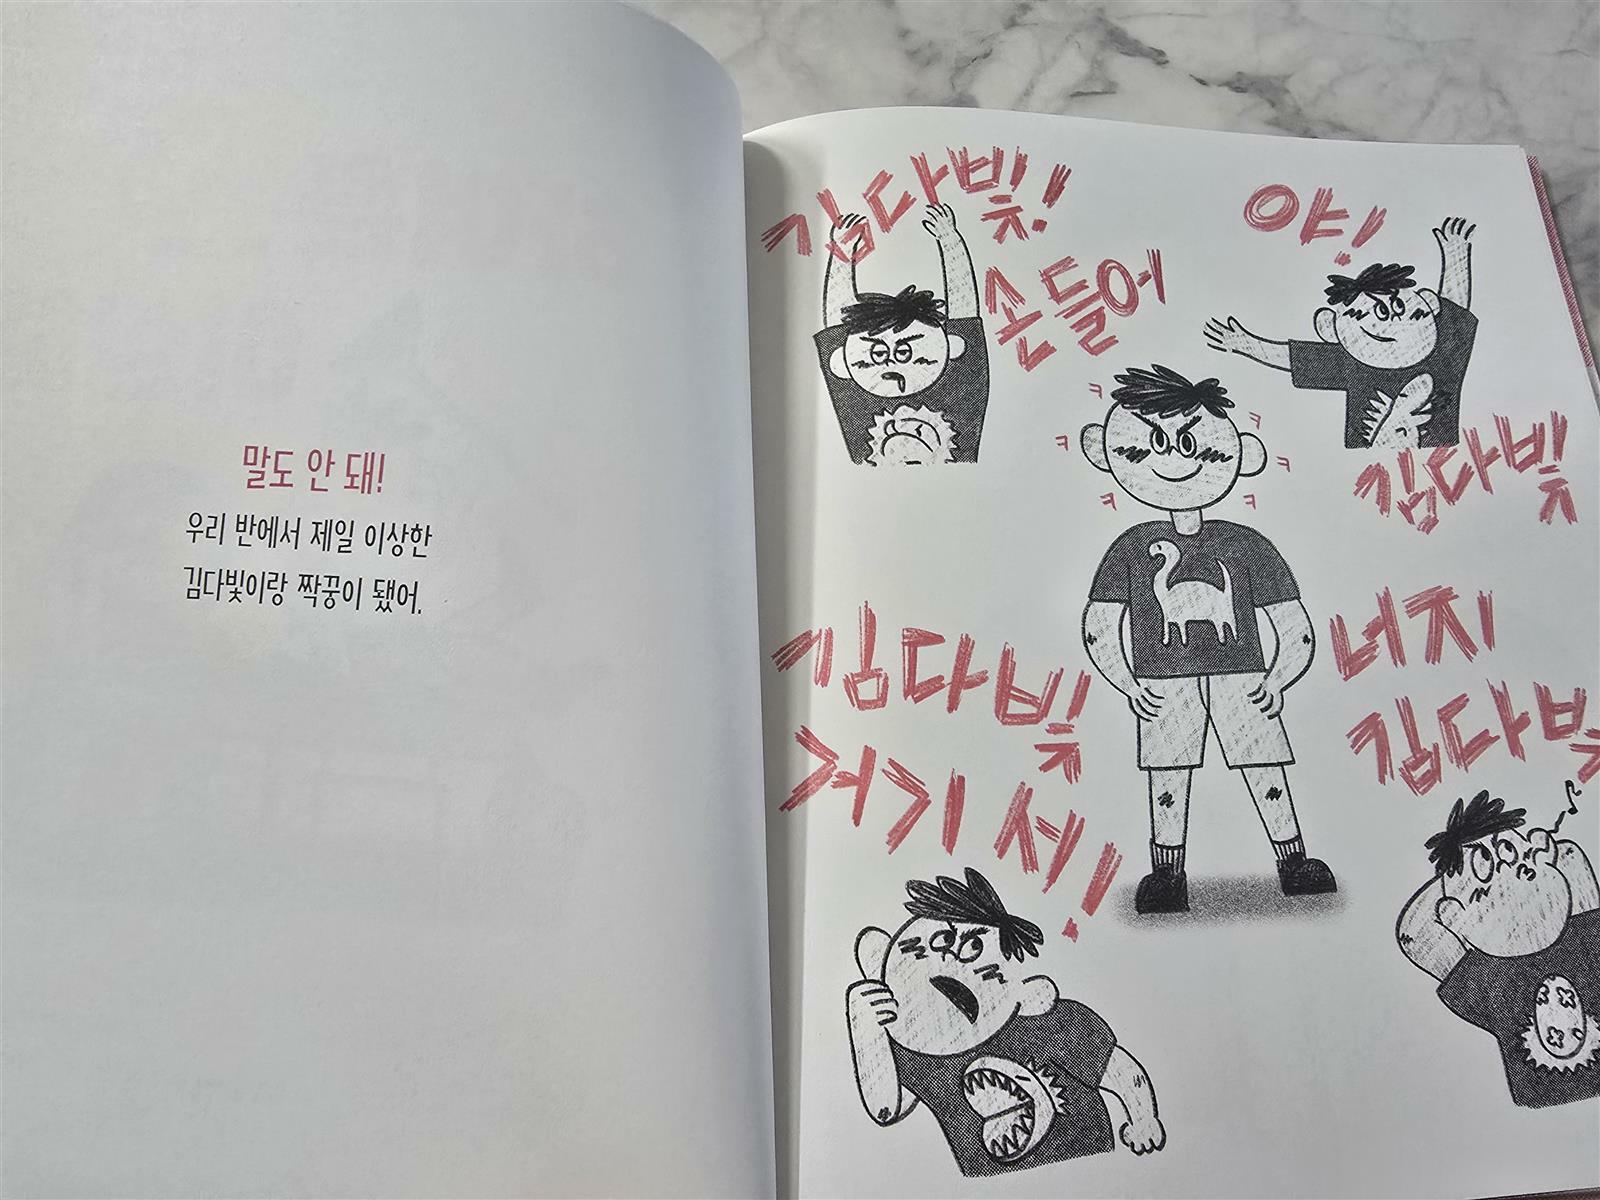 말도 안 돼!
우리 반에서 제일 이상한
김다빛이랑 짝꿍이 됐어.
김다빛!
손들어
야!
김다빛
ㅋ ㅋ
ㅋ ㅋ
ㅋ ㅋ
김다빛
거기 서!
너지
김다빛